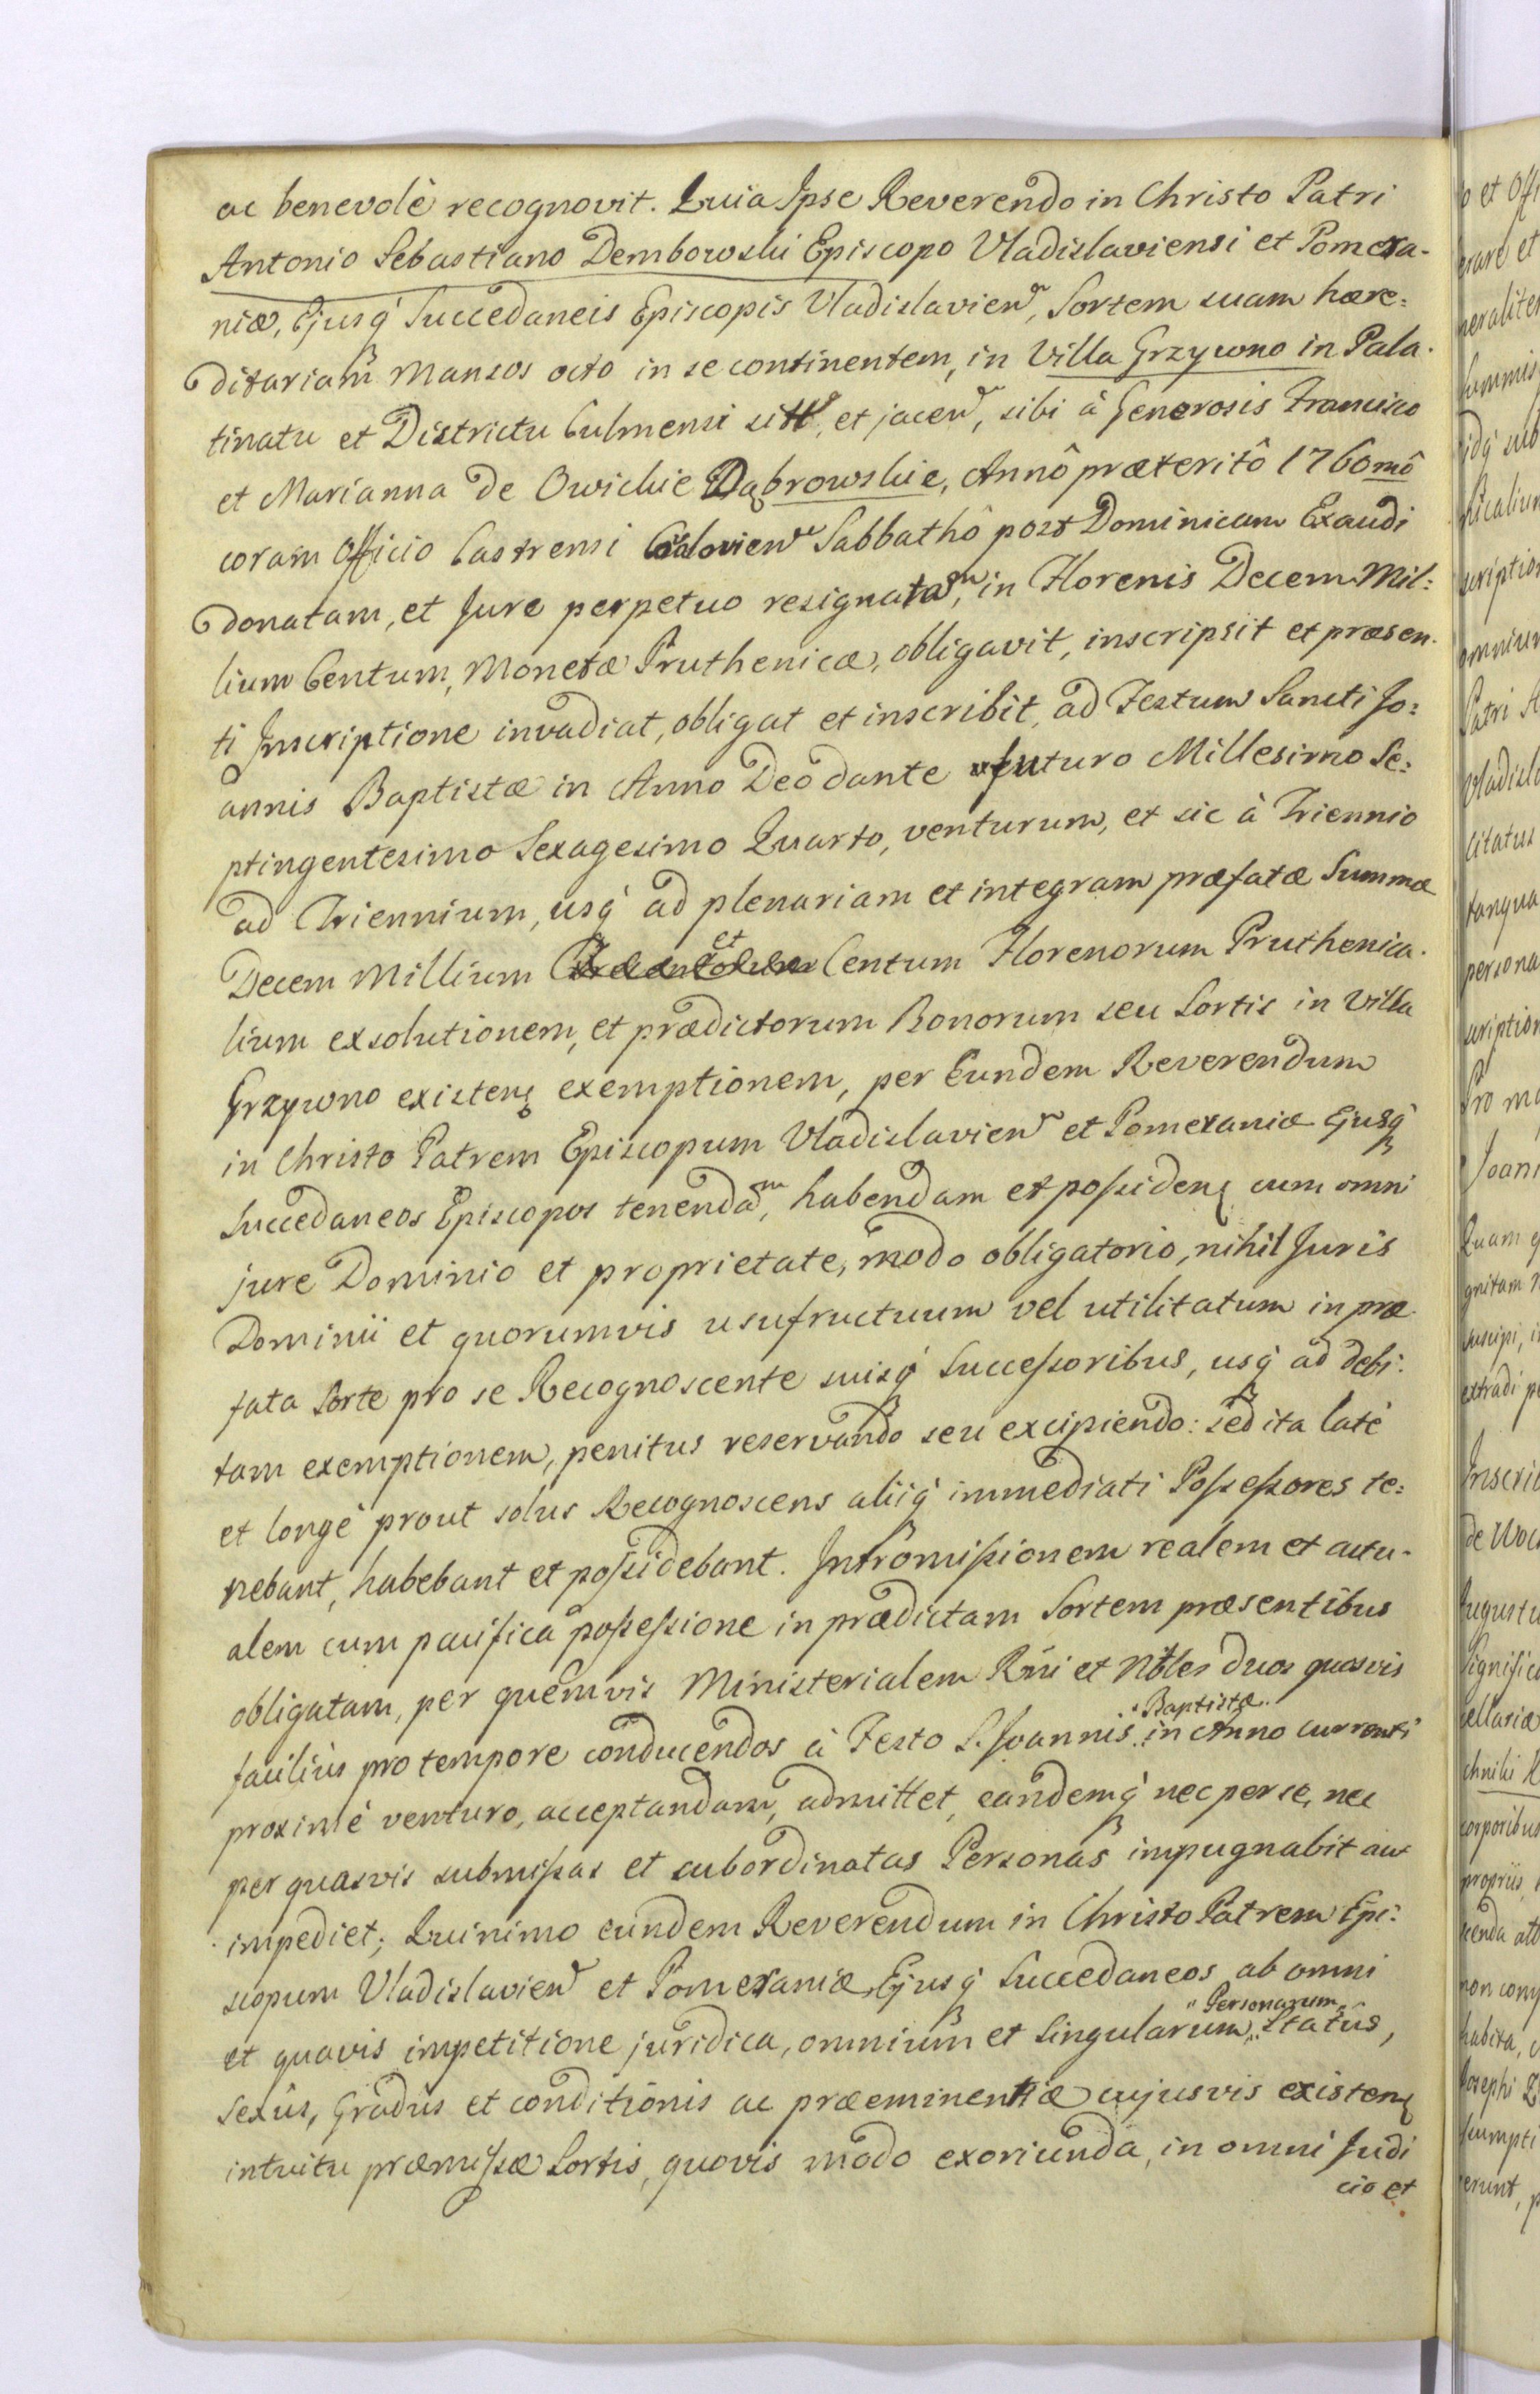 ac benevolè recognovit. Quia Ipse Reverendo in Christo Patri
Antonio Sebastiano Dembowski Episcopo Vladislaviensi et Pomera-
niæ, Ejusq́ Succedaneis Episcopis Vladislavien, Sortem suam hære:
ditariam Mansos octo in se continentem, in Villa Grzywno in Pala-
tinatu et Districtu Culmensi sitt, et jacen, sibi à Generosis Francisco
et Marianna de Owichie Dąbrowskie, Annô præteritô 1760mô
coram Officio Castrensi Sabbathô post Dominicam Exaudi
donatam, et Jure perpetuo resignatam, in Florenis Decem Mil:
lium Centum, Monetæ Pruthenicæ, obligavit, inscripsit et præsen-
ti Inscriptione invadiat, obligat et inscribit, ad Festum Sancti Jo:
annis Baptistæ in Anno Deo dante futuro Millesimo Se:
ptingentesimo Sexagesimo Quarto, venturum, et sic à Triennio
ad Triennium, usq́ ad plenariam et integram præfatæ Summæ
Decem Millium et Centum Florenorum Pruthenica-
lium exsolutionem, et prædictorum Bonorum seu Sortis in Villa
Grzywno existen exemptionem, per Eundem Reverendum
in Christo Patrem Episcopum Vladislavien et Pomeraniæ Ejusq́
Succedaneos Episcopos tenendam, habendam et possiden cum omni
jure Dominio et proprietate, modo obligatorio, nihil Juris
Dominii et quorumvis usufructuum vel utilitatum in præ-
fata Sorte pro se Recognoscente suisq́ Successoribus, usq́ ad debi:
tam exemptionem, penitus reservando seu excipiendo: sed ita latè
et longè prout solus Recognoscens aliiq́ immediati Possessores te:
nebant, habebant et possidebant. Intromissionem realem et actu-
alem cum pacifica possessione in prædictam Sortem præsentibus
obligatam, per quemvis Ministerialem Rńi et Nobles duos quosvis
facilius pro tempore conducendos à Festo S. Joannis Baptistæ in Anno currenti
proximè venturo, acceptandam, admittet, eandemq́ nec per se, nec
per quasvis submissas et subordinatas Personas impugnabit aut
impediet; Quinimo eundem Reverendum in Christo Patrem Epi:
scopum Vladislavien et Pomeraniæ, Ejusq́ Succedaneos ab omni
et quavis impetitione juridica, omnium et singularum Personarum Statûs,
Sexûs, Gradûs et conditionis ac præeminentiæ cujusvis existen
intuitu præmissæ Sortis, quovis modo exoriunda, in omni Judi
cio et